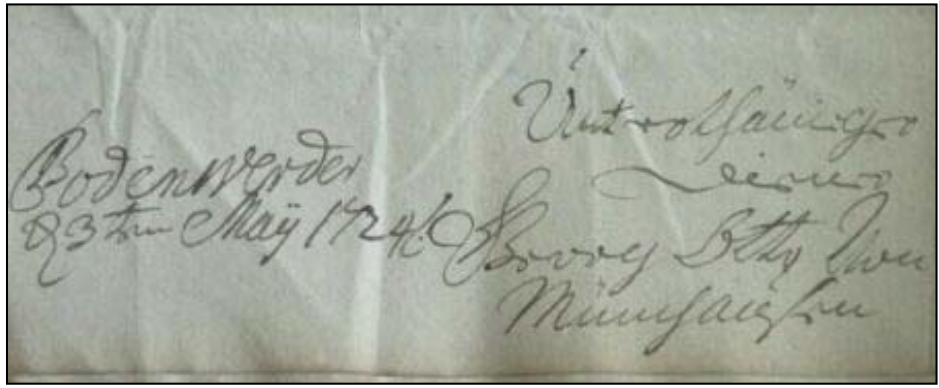 Bodenwerder
23ten Maÿ 1724
Unterthäniger
Diener
Georg Otto Von
Münchausen